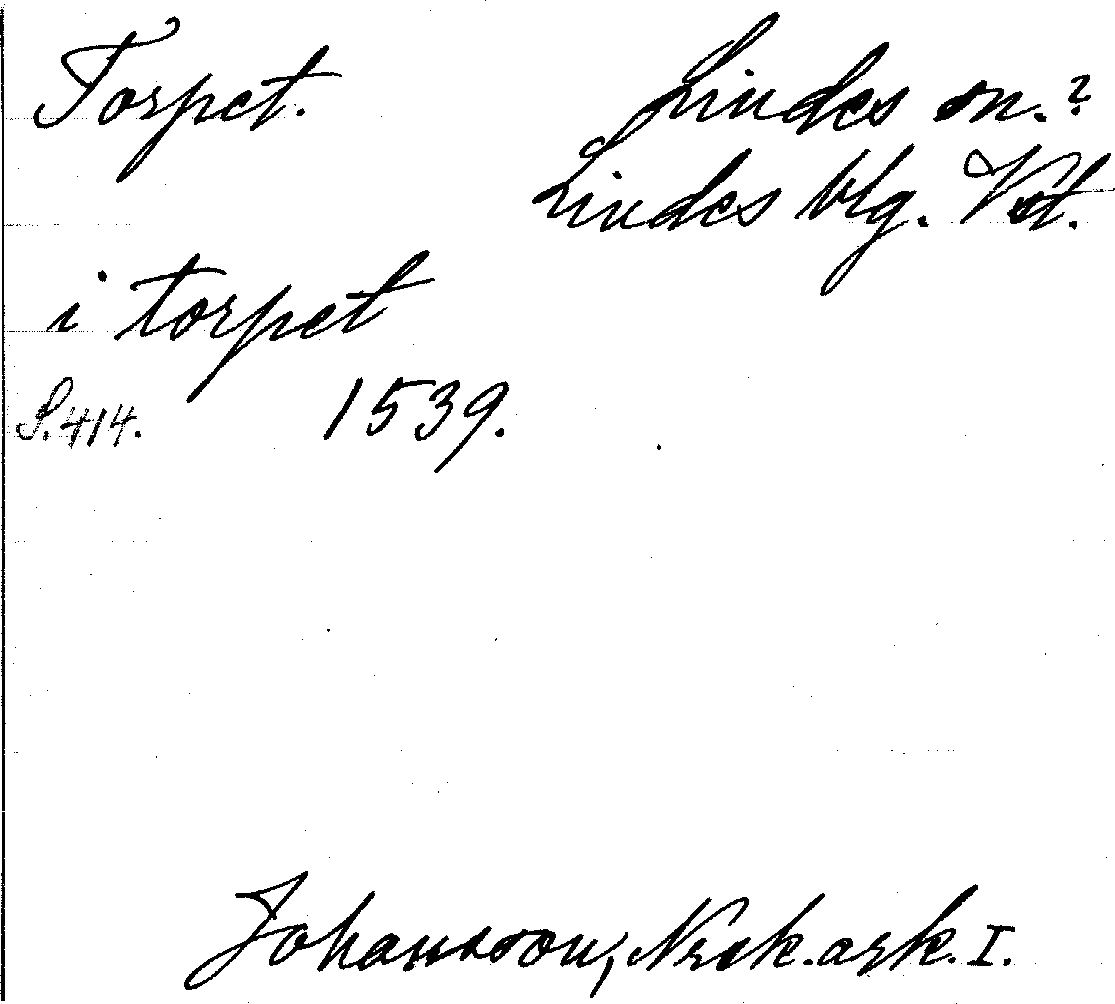 Torpet. Lindes sn.?
Lindes blg. Vst.
i torpet
S. 414. 1539.
Johansson, Nrek. ark. I.